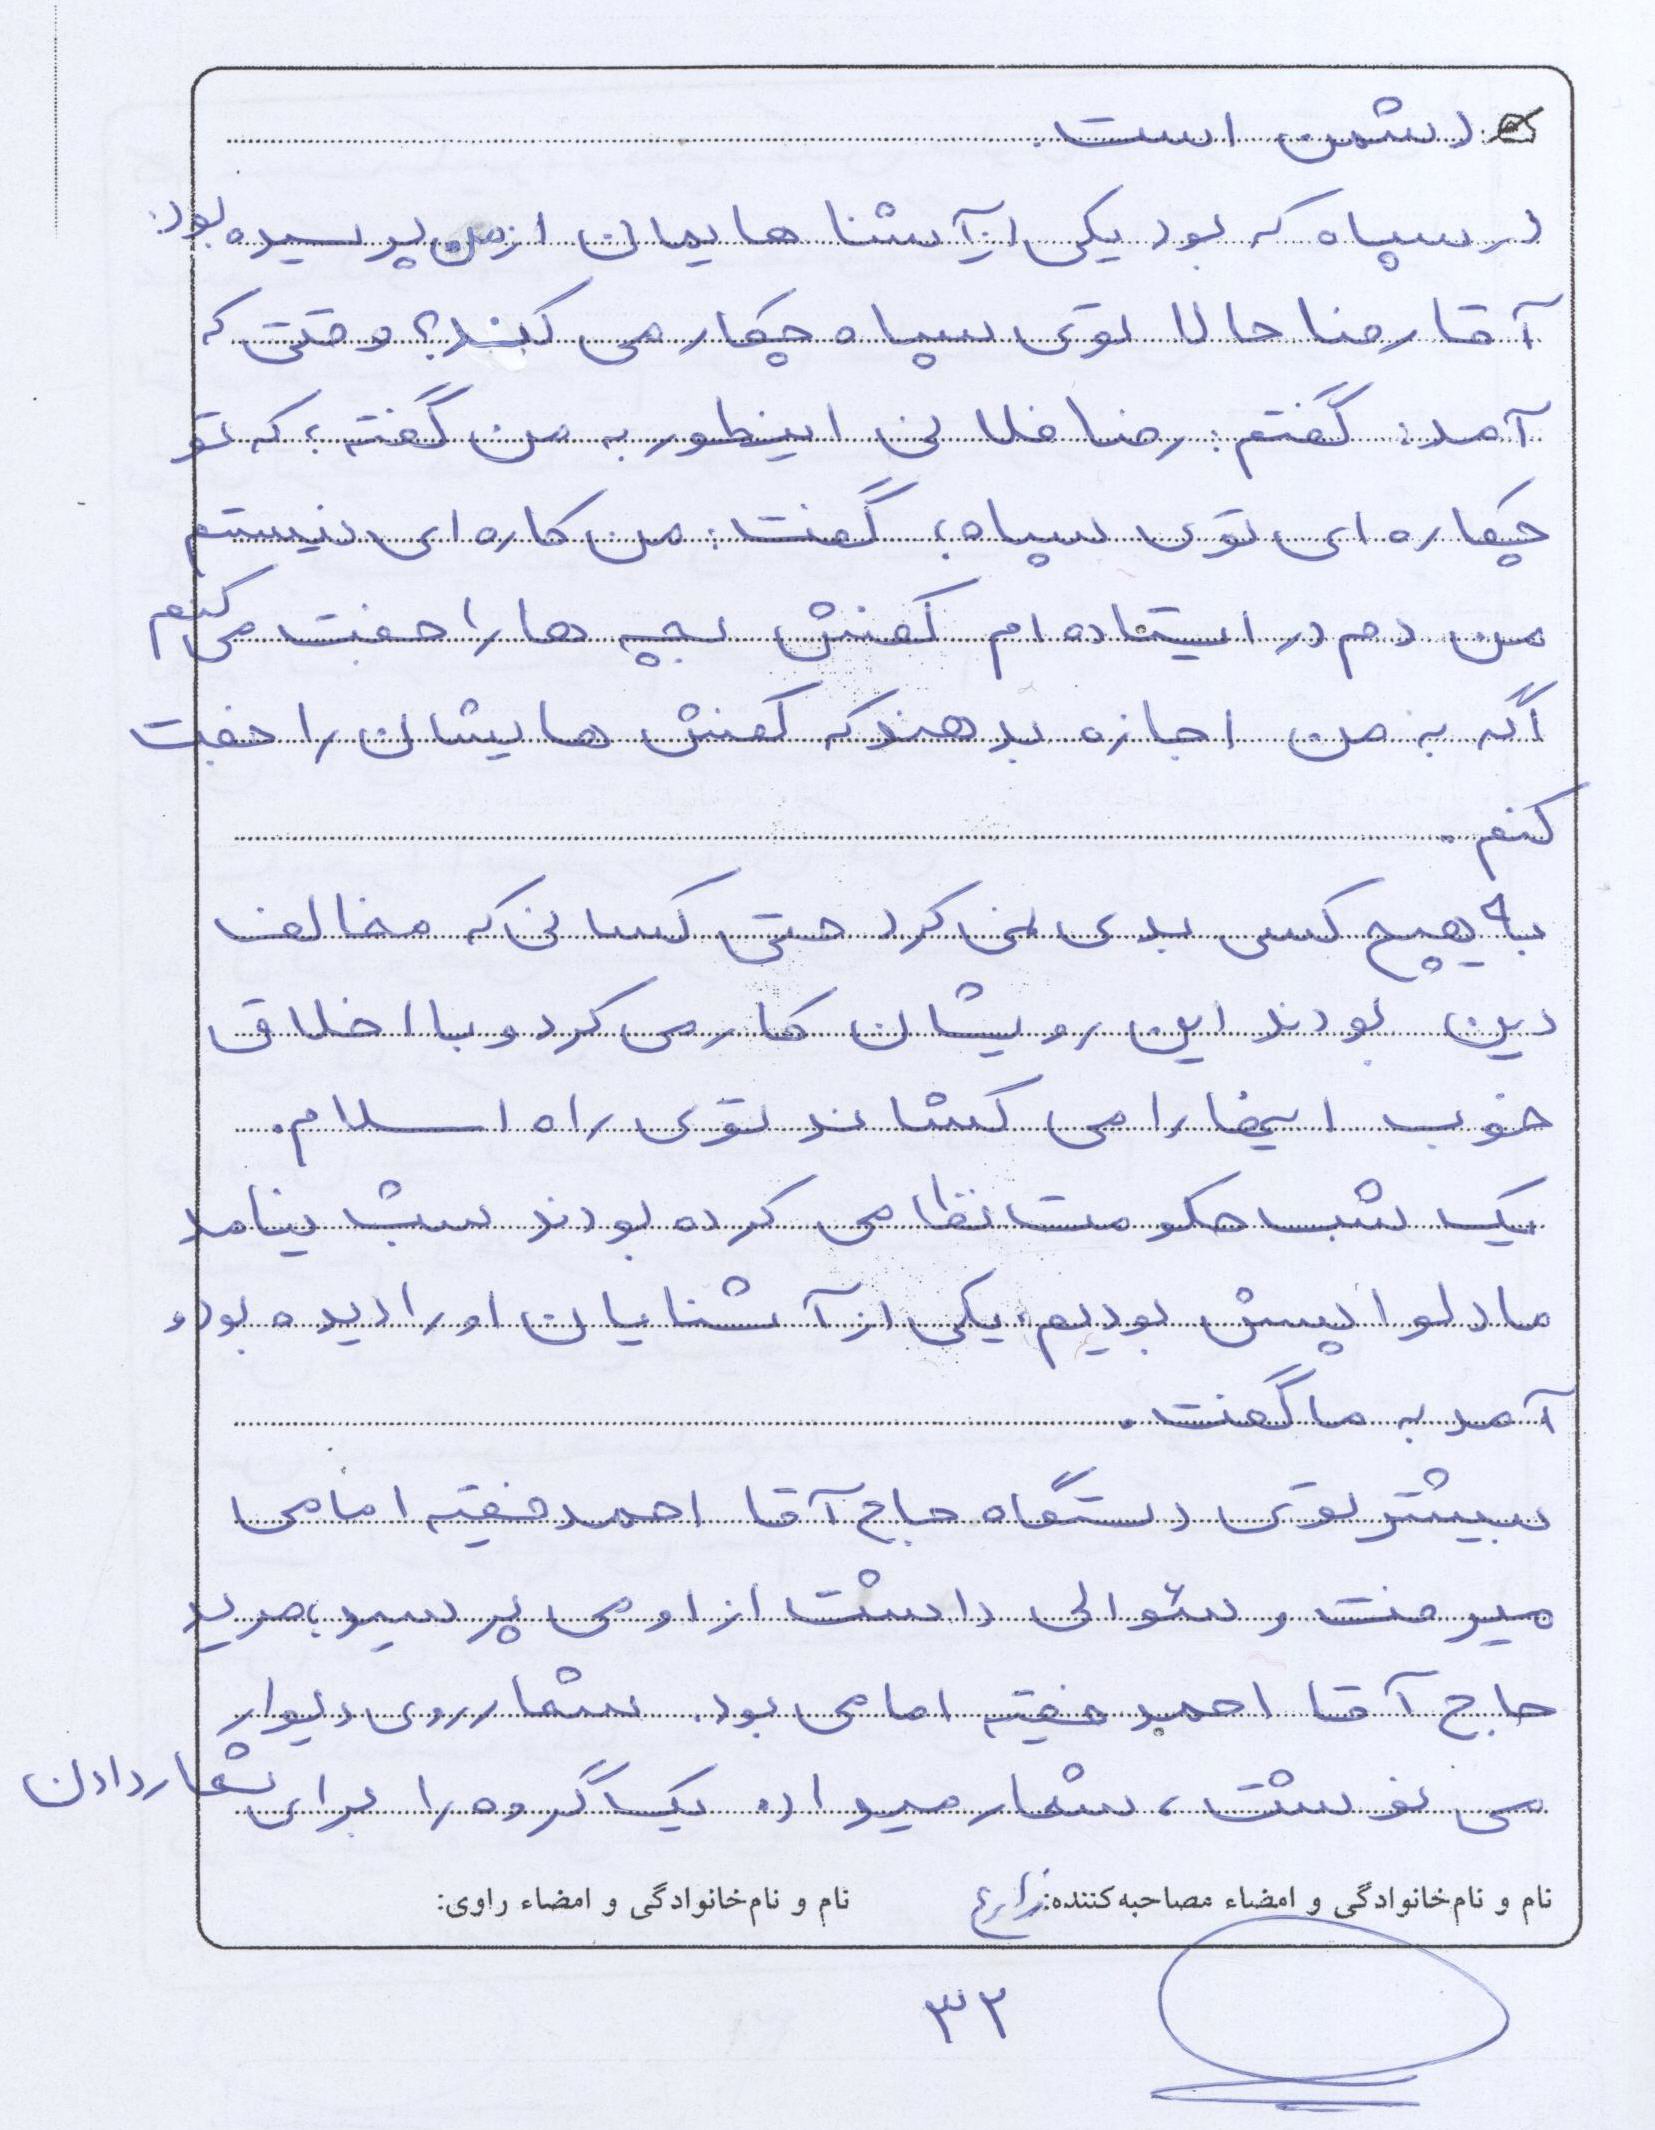 دشمن است.
در سپاه که بود یکی از آشنا هایمان از من پرسیده بود:
آقا رضا حالا توی سپاه چکار می کند؟ وقتی که
آمد، گفتم: رضا فلانی اینطور به من گفته؛ که تو
چکاره ای توی سپاه؛ گفت: من کاره ای نیستم
من دم در ایستاده ام کفش بچه ها را جفت می کنم
اگه به من اجازه بدهند که کفش هایشان را جفت
کنم.
به هیچ کس بدی نمی کرد حتی کسانی که مخالف
دین بودند این رویشان کار می کرد و با اخلاق
خوب اینها را می کشاند توی راه اسلام.
یک شب حکومت نظامی کرده بودند شب نیامد
ما دلواپس بودیم، یکی از آشنایان او را دیده بود و
آمد به ما گفت.
بیشتر توی دستگاه حاج آقا احمد فقیه امامی
میرفت و سئوالی داشت از او می پرسید؛ مرید
حاج آقا احمد فقیه امامی بود. شعار روی دیوار
می نوشت، شعار میداد. یک گروه را برای شعار دادن
نام و نام‌خانوادگی و امضاء مصاحبه‌کننده: زارع نام و نام‌خانوادگی و امضاء راوی:
۳۲